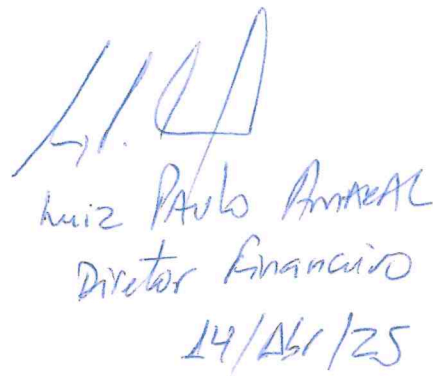 Luiz Paulo Amaral
Diretor Financeiro
14/Abr/25